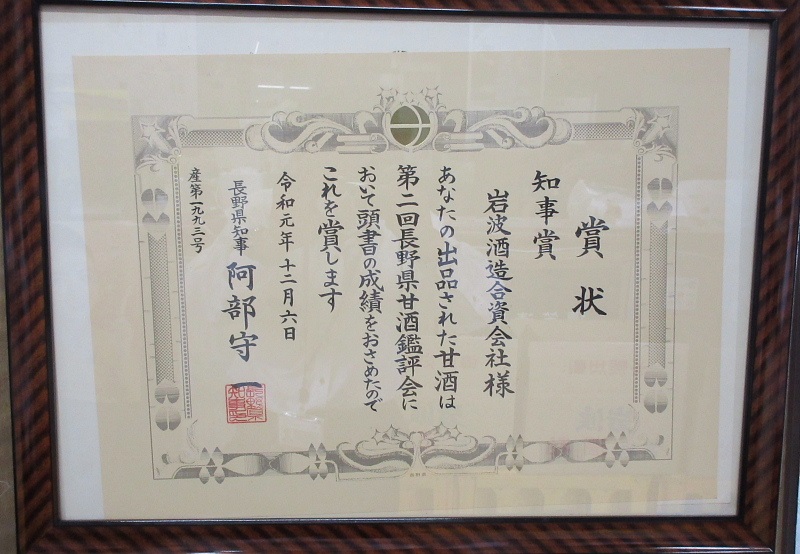 賞状
知事賞
岩波酒造合資会社様
あなたの出品された甘酒は
第二回長野県甘酒鑑評会に
おいて頭書の成績をおさめたので
これを賞します
令和元年十二月六日
長野県知事 阿部守一
産第一九九三号